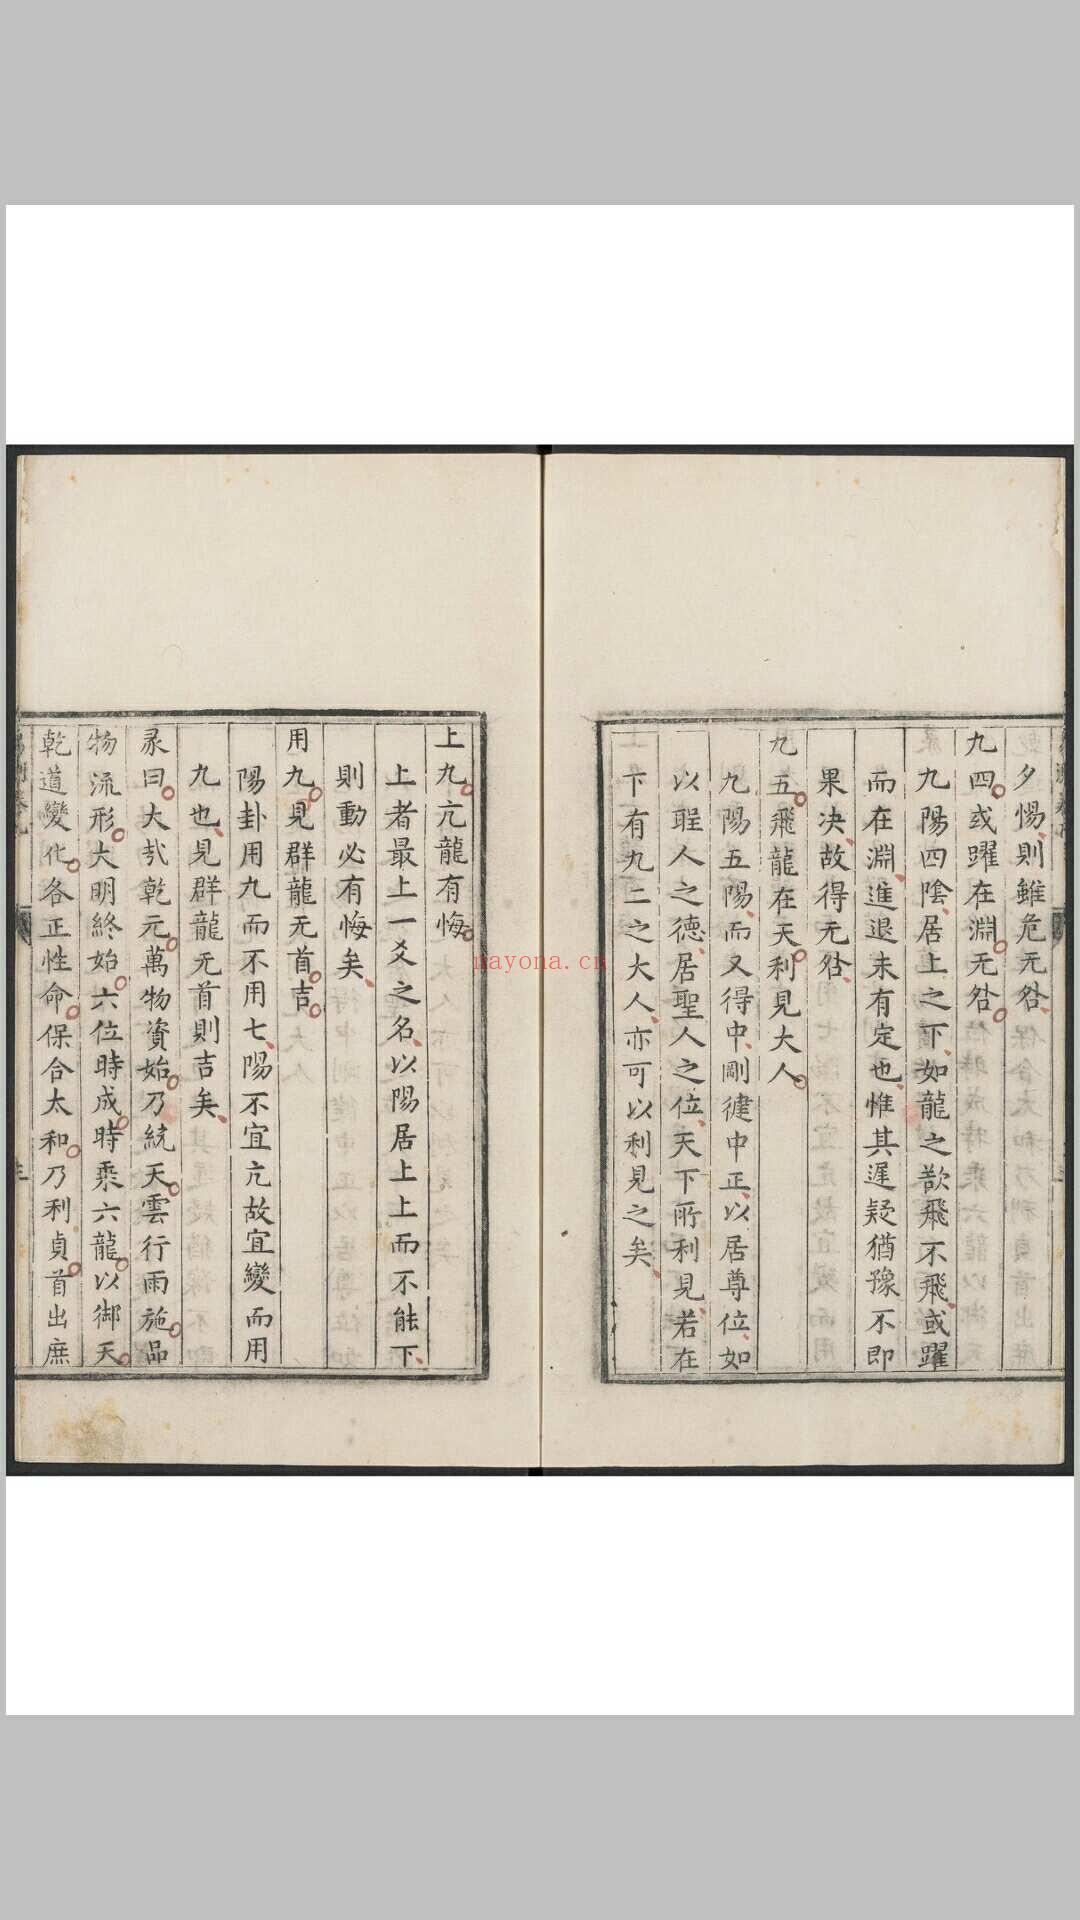 夕惕則雖危无咎
九四或躍在淵无咎
九陽四陰居上之下如龍之欲飛不飛或躍
而在淵進退未有定也惟其遲疑猶豫不即
果决故得无咎
九五飛龍在天利見大人
九陽五陽而又得中剛健中正以居尊位如
以聖人之德居聖人之位天下所利見若在
下有九二之大人亦可以利見之矣
上九亢龍有悔
上者最上一爻之名以陽居上上而不能下
則動必有悔矣
用九見群龍无首吉
陽卦用九而不用七陽不宜亢故宜變而用
九也見群龍无首則吉矣
彖曰大哉乾元萬物資始乃統天雲行雨施品
物流形大明終始六位時成時乘六龍以御天
乾道變化各正性命保合太和乃利貞首出庶
nayona.cn